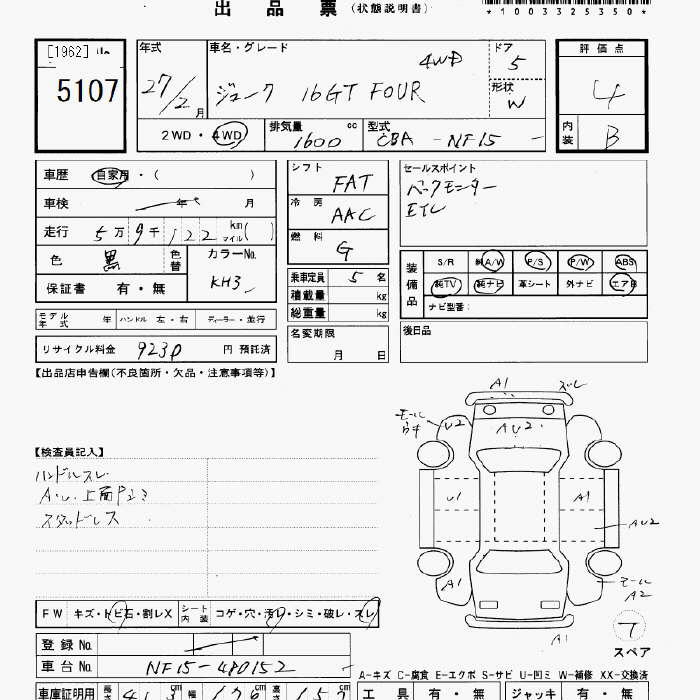 出 品 票 (状態説明書)
*1003325350*
[1962]
5107
年式
27/2 月
車名・グレード
ジューク 16GT FOUR 4WD
ドア 5
形状 W
2WD・4WD
排気量 1600 cc
型式 CBA - NF15 -
評価点 4
内装 B
車歴 自家用・( )
車検 年 月
走行 5万 9千 122 km マイル( )
色 黒 色替
カラーNo. KH3
保証書 有・無
シフト FAT
冷房 AAC
燃料 G
乗車定員 5 名
積載量 kg
総重量 kg
セールスポイント
バックモニター
ETC
装備品
S/R 純A/W P/S P/W ABS
純TV 純ナビ 革シート 外ナビ エアB
ナビ型番:
モデル年式 年 ハンドル 左・右 ディーラー・並行
リサイクル料金 9230 円 預託済
名変期限 月 日
後日品
【出品店申告欄(不良箇所・欠品・注意事項等)】
A1 スレ
モール ウキ U2 AU2
【検査員記入】
ハンドルスレ
スタッドレス
U1 A1 AU2
A1 モール A2
A1
スペア
FW キズ・トビ石・割レX シート内装 コゲ・穴・汚レ・シミ・破レ・スレ
登録 No.
車台 No. NF15-480152
A-キズ C-腐食 E-エクボ S-サビ U-凹ミ W-補修 XX-交換済
車庫証明用 長さ 幅 高さ
工具 有・無 ジャッキ 有・無